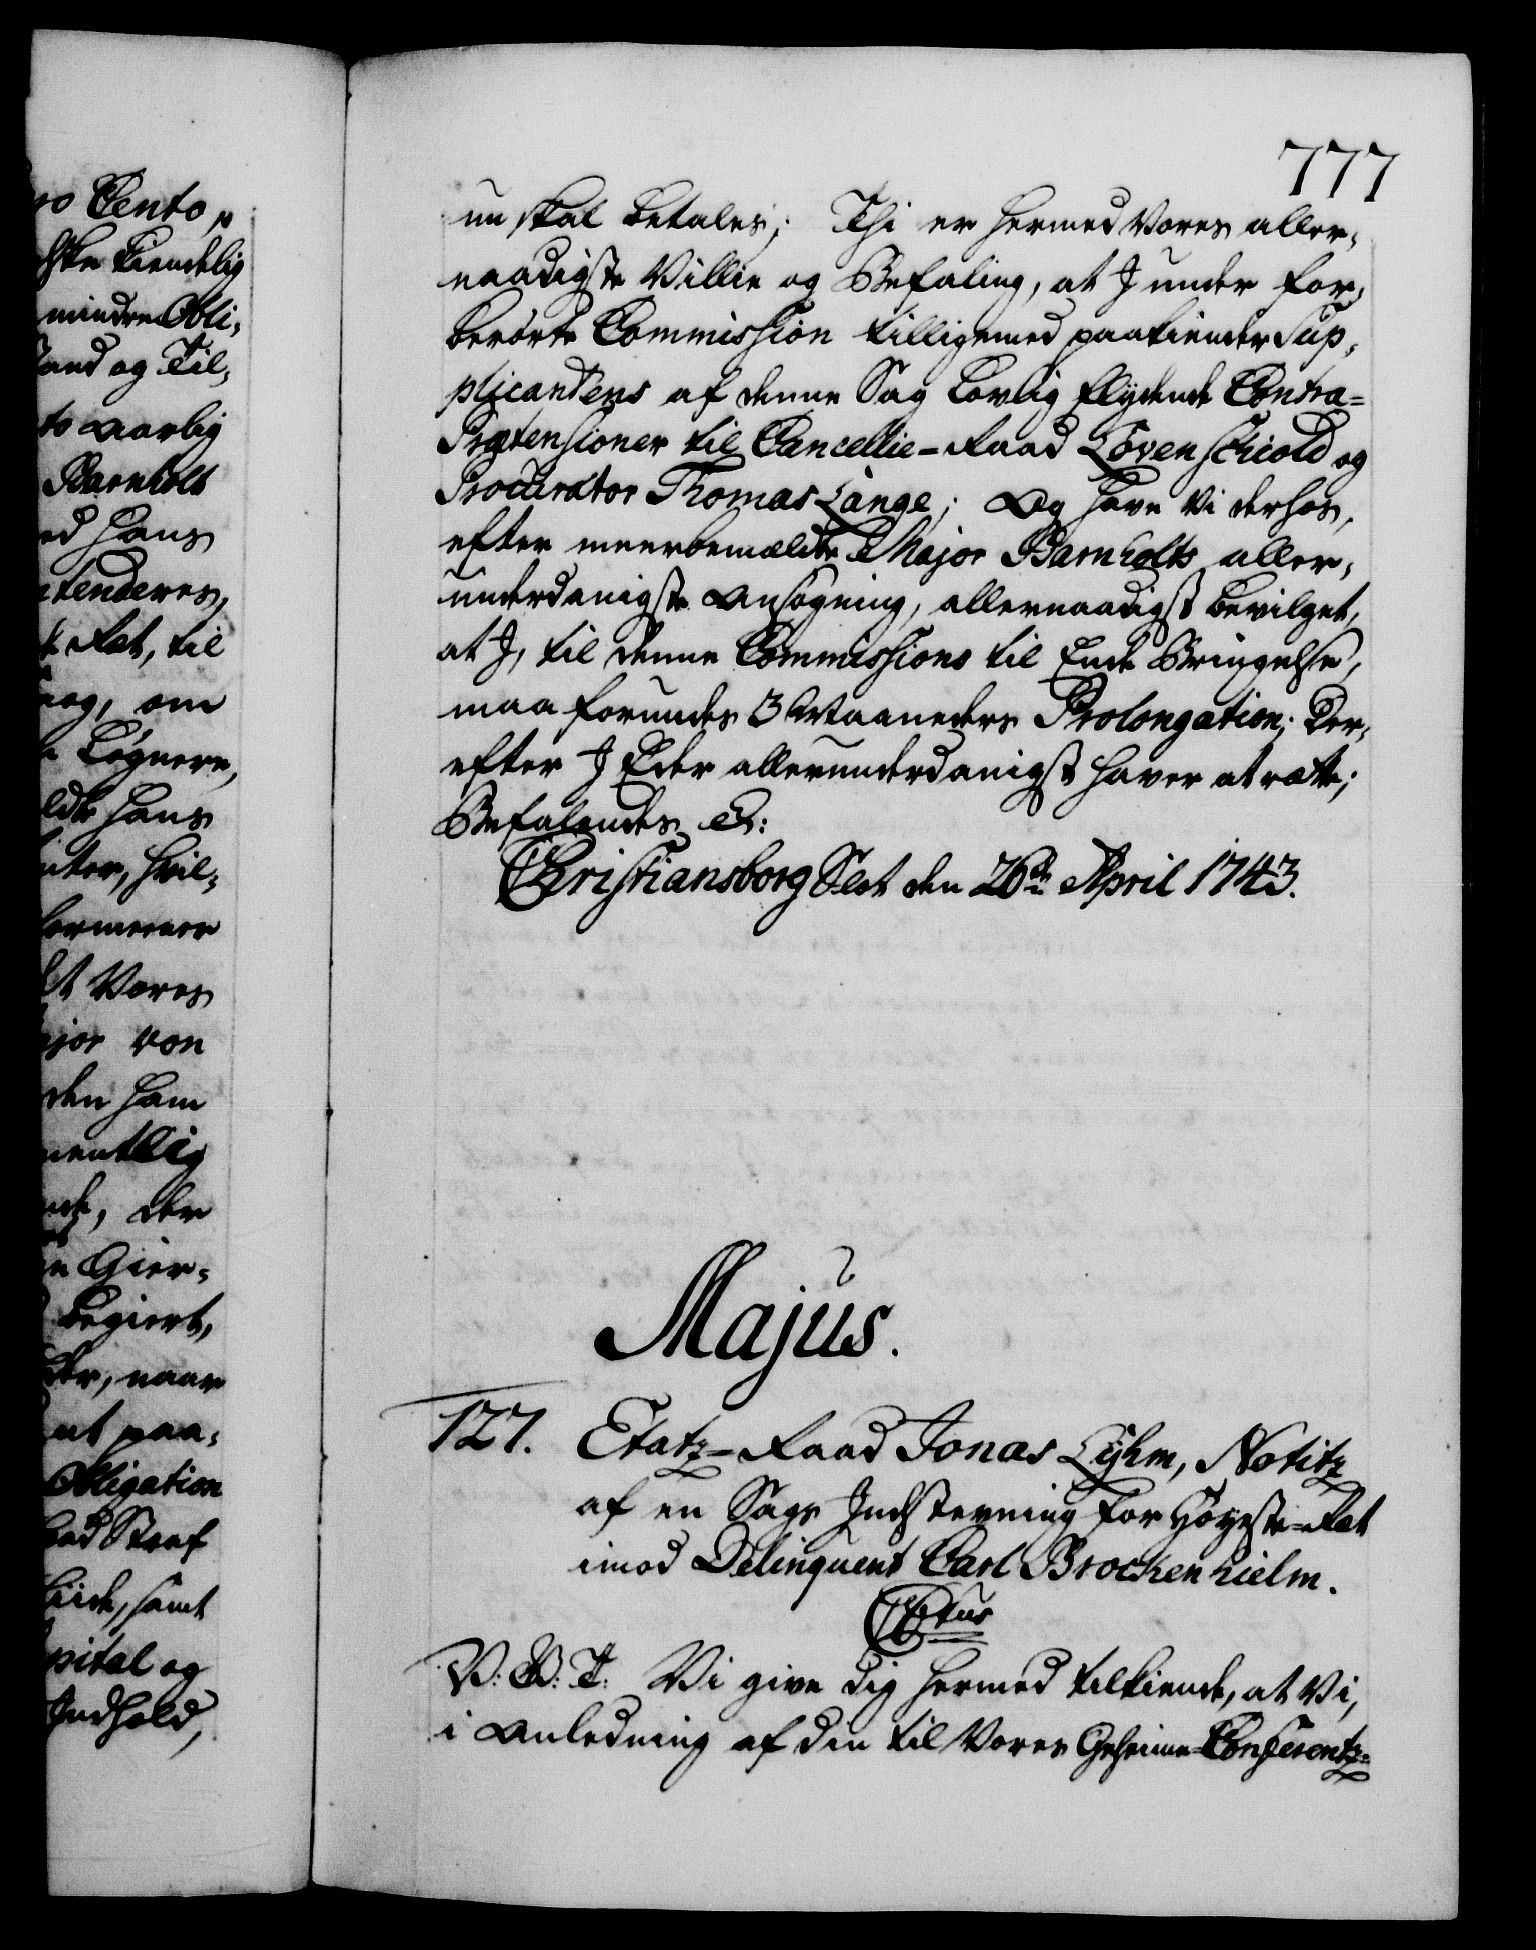 777
ro Cento,
ske kiendelig
mindre Obli,
and og Til,
to aarlig
Barnholt
ed Hans
tenderes,
Ret, til
og, om
Løgnere,
ldte Hans
nter, hvil,
formeener
t Vores
jor von
den Ham
mentlig
nde, der
n Gier,
begiert,
der, naar
ut paa,
Obligation
bød Straf
Eide, samt
pital og
Indhold,
un skal betales; Thi er hermed Vores aller,
naadigste Villie og Befaling, at J under for,
berørte Commission tilligemed paakiender Sup,
plicantens af denne Sag Lovlig flydende Contra=
Prætensioner til Cancellie-Raad Løvenschiold og
Procurator Thomas Lange; Og have Vi derhos,
efter meerbemælte Major Barnholts aller,
underdanigste Ansøgning, allernaadigst bevilget,
at J, til denne Commissions til Ende Bringelse,
maa forundes 3 Maaneders Prolongation; Der,
efter J Eder allerunderdanigst haver at rætte;
Befalendes &:
Christiansborg Slot den 26de April 1743.
Majus.
127. Etatz-Raad Jonas Lyhm, Notitz
af en Sags Indstevning for Høyeste-Ret
imod Delinquent Carl Brockenhielm.
CP6tus
V: G: T: Vi give dig hermed tilkiende, at Vi,
i Anledning af din til Vores Geheime-Conferentz=